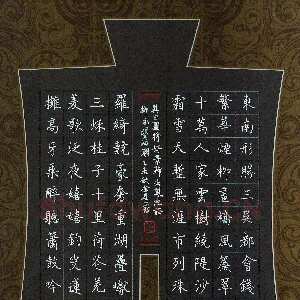 東南形勝三吳都會錢
繁華煙柳畫橋風簾翠
十萬人家雲樹繞堤沙
霜雪天塹無涯市列珠
羅綺競豪奢重湖疊巘
三秋桂子十里荷花羌
菱歌泛夜嬉嬉釣叟蓮
擁高牙乘醉聽簫鼓吟